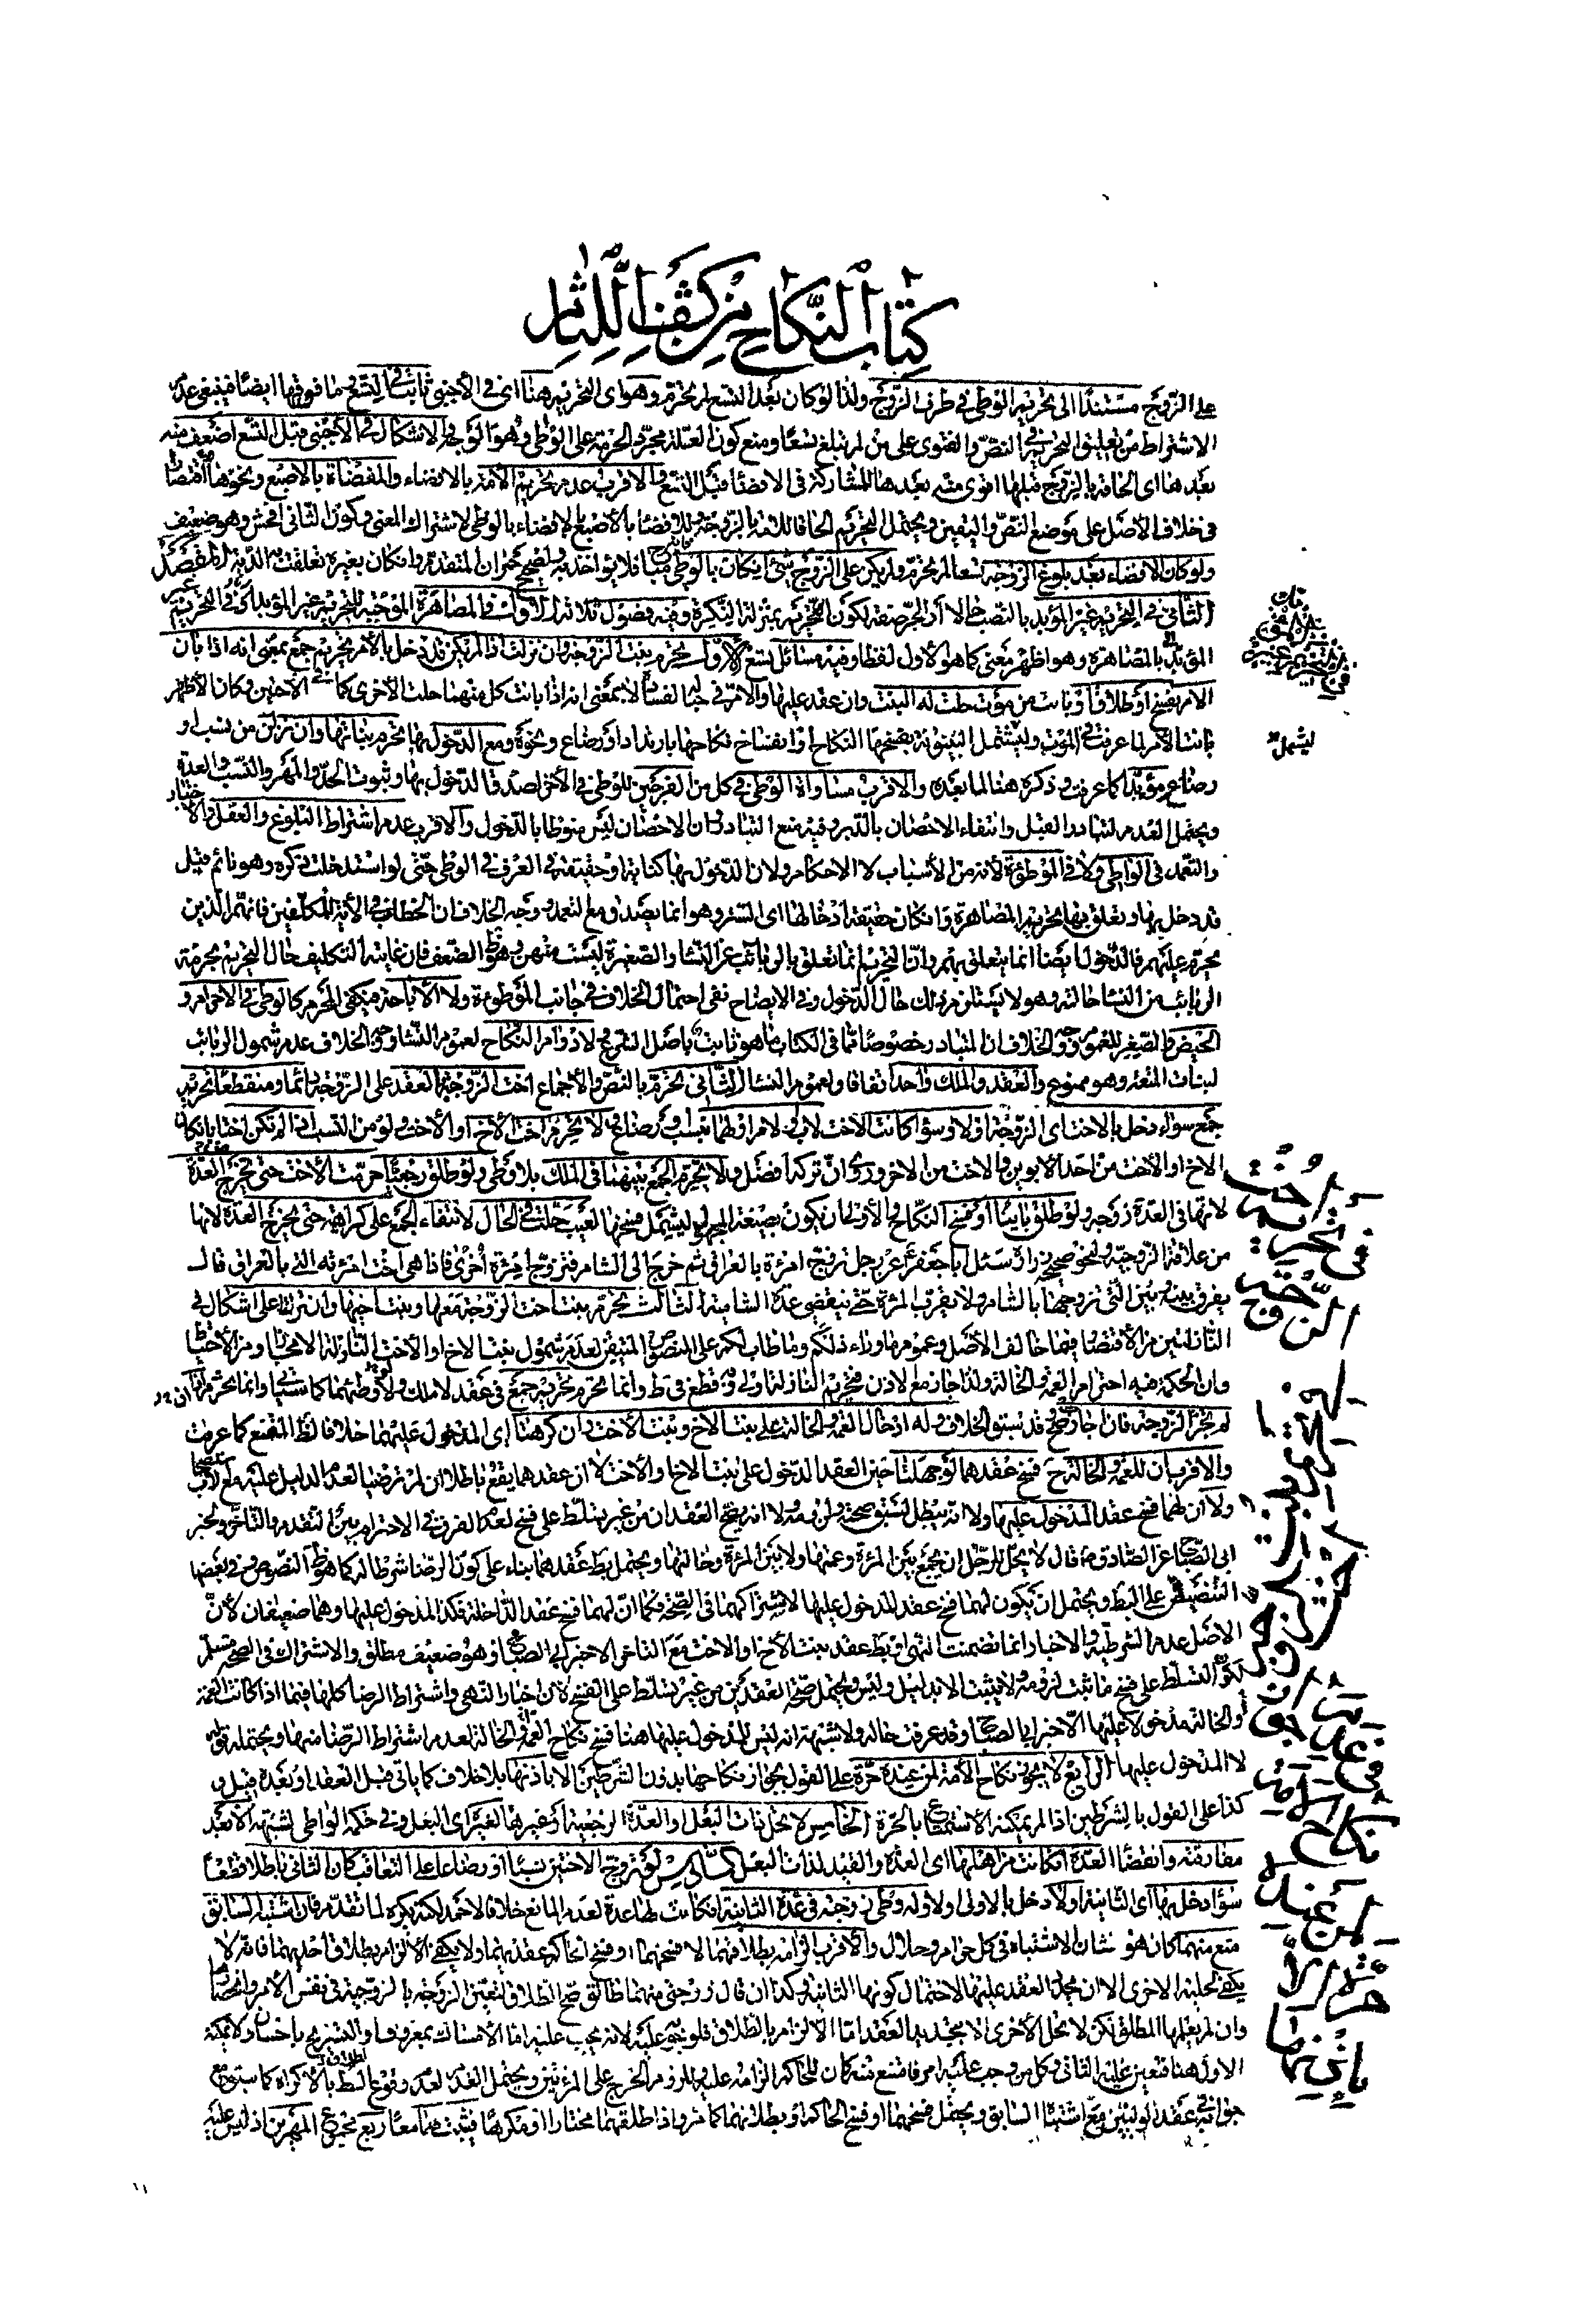 كتاب النكاح من كشف اللثام
على الزوج مستندا الى تحريم الوطي في طرف الزوج ولذا لو كان بعد التسع لم يحرم وهو اى التحريم هنا اى في الأجنبي ثابت في التسع فما فوقها ايضا فينبغي عدم
الاشتراط من تعليق التحريم في النص والفتوى على من لم تبلغ تسعا ومنع كون العلة مجرد الحرمة على الوطي وهو الوجه والاشكال في الأجنبي قبل التسع اضعف منه
بعدها اى الحاقه بالزوج قبلها اقوى منه بعدها للمشاركة في الافضاء قبل التسع والاقرب عدم تحريم الأمة بالافضاء والمفضاة بالاصبع ونحوها اقتصارا
في خلاف الأصل على موضع النص واليقين ويحتمل التحريم الحاقا للأمة بالزوجة وللافضاء بالأصبع بالافضاء بالوطي لاشتراك المعنى وكون الثاني افحش وهو ضعيف
ولو كان الافضاء بعد بلوغ الزوجة تسعا لم تحرم ولم يكن على الزوج شئ ان كان بالوطي فلا يؤاخذ به ولصحيح حمران المتقدم وان كان بغيره تعلقت به الدية المقصد
الثاني في التحريم غير المؤبد بالنصب حالا او الجر صفة لكون التحريم بمنزلة النكرة وفيه فصول ثلاثة الاول في المصاهرة الموجبة للتحريم غير المؤبد اى في التحريم
المؤبد بالمصاهرة وهو اظهر معنى كما هو الأول لفظا وفيه مسائل تسع الأول تحرم بنت الزوجة وان نزلت اذا لم يكن قد دخل بالأم تحريم جمع بمعنى انه اذا بان
الأم بفسخ او طلاق او بانت من موت حلت له البنت وان عقد عليها والأم في حباله فسد لا بمعنى انه اذا بانت كل منهما حلت الأخرى كما في الأختين وكان الأظهر
بانت الأم لما عرفت في الموت وليشتمل البينونة بفسخها النكاح او انفساخ نكاحها بارتداد او رضاع ونحوه ومع الدخول بها تحرم بناتها وان نزلن من نسب او
رضاع مؤبدا كما عرفت وذكره هنا لما بعده والاقرب مساواة الوطي في كل من الفرجين للوطي في الأخر لصدق الدخول بها وثبوت الحد والمهر والنسب والعدة
ويحتمل العدم لتبادر القبل وانتفاء الاحصان بالدبر وفيه منع التبادر وان الاحصان ليس منوطا بالدخول والاقرب عدم اشتراط البلوغ والعقل والاختيار
والتعمد في الواطي ولا في الموطوئة لأنه من الأسباب لا الاحكام ولان الدخول بها كناية او حقيقة في العرف في الوطي حتى لو استدخلت ذكره وهو نائم قيل
قد دخل بها وتعلق بها تحريم المصاهرة وان كان حقيقة ادخالها اى الستر وهو انما يصدق مع التعمد ووجه الخلاف ان الخطاب في الأية للمكلفين فانهم الذين
يحرم عليهم فالدخول ايضا انما يتعلق بهم وان التحريم انما تعلق بالربائب عن النساء والصغيرة ليست منهن وهو ظاهر الضعف فان غايته التكليف حال التحريم بحرمة
الربائب من النساء حالته وهو لا يستلزم ذلك حال الدخول وفي الايضاح نفى احتمال الخلاف في جانب الموطوءة ولا الاباحة فيكفي المحرم كالوطي في الاحرام و
الحيض والصغر للعموم ووجه الخلاف ان المتبادر خصوصا مما في الكتاب ما هو ثابت بأصل الشرع ولا دوام النكاح لعموم النساء ووجه الخلاف عدم شمول الربائب
لبنات المتعة وهو ممنوع والعقد والملك واحد اتفاقا ولعموم النساء الثاني تحرم بالنص والأجماع اخت الزوجة بالعقد على الزوجة دائما ومنقطعا تحريم
جمع سواء دخل بالاخت اى الزوجة او لا وسواء كانت الأخت لاب او لأم او لهما بنسب او رضاع ولا تحرم اخت الأخ او الأخت ولو من النسب اذا لم تكن اختا بان كان
الاخ او الأخت من احد الابوين والاخت من الاخر وروى ان تركه افضل ولا يحرم الجمع بينهما في الملك بلا وطي ولو طلق رجعيا حرمت الأخت حتى تخرج العدة
لانها في العدة زوجة ولو طلق باينا او فسخ النكاح والأولى ان يكون بصيغة المجهول ليشمل فسخها العيب حلت في الحال لانتفاء الجمع على كراهية حتى تخرج العدة لانها
من علاقة الزوجية ولنحو صحيحة زرارة سئل ابا جعفر عن رجل تزوج امرأة بالعراق ثم خرج الى الشام فتزوج امرأة أخرى فاذا هى اخت امرأته التى بالعراق قال
يفرق بينه وبين التى تزوجها بالشام ولا يقرب المرأة حتى تنقضي عدة الشامية الثالث تحرم بنت اخت الزوجة معها وبنت اخيها وان نزلتا على اشكال في
النازلتين من الاقتصار فيما خالف الأصل وعموم ما وراء ذلكم وما طاب لكم على المنصوص المتيقن لعدم شمول بنت الاخ او الأخت النازلة الا مجازا ومن الأحتياط
وان الحكمة فيه احترام العمة والخالة ولذا جاز مع الاذن فتحريم النازلة اولى وبه قطع في ط وانما تحرم تحريم جمع في عقد لا ملك ولا وطئهما كما سيأتي وانما يحرم
لم تجز الزوجة فان اجازت صح وقد سبق الخلاف وله ادخال العمة والخالة على بنت الأخ وبنت الأخت وان كرهتا اى المدخول عليهما خلافا لظ المقنع كما عرفت
والاقرب ان للعمة والخالة ح فسخ عقدهما لو جهلتا حين العقد الدخول على بنت الاخ او الأخت لا ان عقدهما يقع باطلا ان لم ترضيا لعدم الدليل عليه
ولا ان لهما فسخ عقد المدخول عليها ولا انه يبطل لسبق صحته ولزومه ولا انه يصح العقدان من غير تسلط على فسخ لعدم الفرق في الاحترام بين التقدم والتأخر ولخبر
ابى الصباح عن الصادق ع قال لا يحل للرجل ان يجمع بين المرأة وعمتها ولا بين المرأة وخالتها ويحتمل بط عقدهما بناء على كون الرضا شرطا له كما هو ظ النصوص وفي بعضها
التنصيص على البط ويحتمل ان يكون لهما فسخ عقد المدخول عليها لاشتراكهما في الصحة فكما ان لهما فسخ عقد الداخلة فكذا المدخول عليها وهما ضعيفان لأن
الاصل عدم الشرطية والاخبار انما تضمنت النهى او بط عقد بنت الأخ او الاخت مع التأخر الا خبر ابى الصباح وهو ضعيف مطلق والاشتراك في الصحة مسلم
لكن التسلط على فسخ ما ثبت لزومه لا يثبت الا بدليل وليس ويحتمل صحة العقدين من غير تسلط على الفسخ لان اخبار النهى واشتراط الرضا كلها فيما اذا كانت العمة
او الخالة مدخولا عليها الا خبر ابى الصباح وقد عرفت حاله ولا شبهة انه ليس للمدخول عليها هنا فسخ نكاح العمة والخالة لعدم اشتراط الرضا منها ويحتمله قوله
لا المدخول عليها الرابع لا يجوز نكاح الأمة لمن عنده حرة على القول بجواز نكاحها بدون الشرطين الا باذنها بلا خلاف كما ياتي قبل العقد او بعده قيل و
كذا على القول بالشرطين اذا لم يمكنه الاستمتاع بالحرة الخامس لا تحل ذات البعل او العدة الرجعية او غيرها لغيره اى البعل وفي حكمه الواطي بشبهة الا بعد
مفارقته وانقضاء العدة ان كانت من اهلها اى العدة والقيد لذات البعل السادس لو تزوج الاختين نسبا او رضاعا على التعاقب كان الثاني باطلا قطعا
سواء دخل بها اى الثانية او لا دخل بالاولى او لا وله وطي زوجته في عدة الثانية ان كانت لها عدة لعدم المانع خلافا لأحمد لكنه يكره لما تقدم فان اشتبه السابق
منع منهما كان هو شان الاشتباه في كل حرام وحلال والاقرب الزامه بطلاقهما لا فسخهما او فسخ الحاكم عقديهما ولا يكفي الألزام بطلاق احدهما فانه لا
يكفي لحلية الاخرى الا ان يجدد العقد عليها لاحتمال كونها الثانية وكذا ان قال زوجتي منهما طالق صح الطلاق لتعين الزوجة بالزوجية في نفس الأمر
وان لم يعلمها المطلق لكن لا تحل الأخرى الا بتجديد العقد اما الالزام بالطلاق فلوجوبه عليه لانه يجب عليه اما الأمساك بمعروف او التسريح باحسان ولا يمكنه
الاول هنا فتعين عليه الثاني وكل من وجب عليه امر فامتنع منه كان للحاكم الزامه عليه وللزوم الحرج على المرأتين ويحتمل العدم لعدم وقوع الطلاق بالاكراه كما سبق مع
جوابه في عقد الوليين مع اشتباه السابق ويحتمل فسخهما او فسخ الحاكم او بطلانهما كما مر واذا طلقهما مختارا او مكرها ثبت لهما معا ربع مجموع المهرين اذ ليس عليه
ليشمل
في تحريم اخت الزوجة
في عدم جواز نكاح الامة لمن عنده حرة الا باذنها